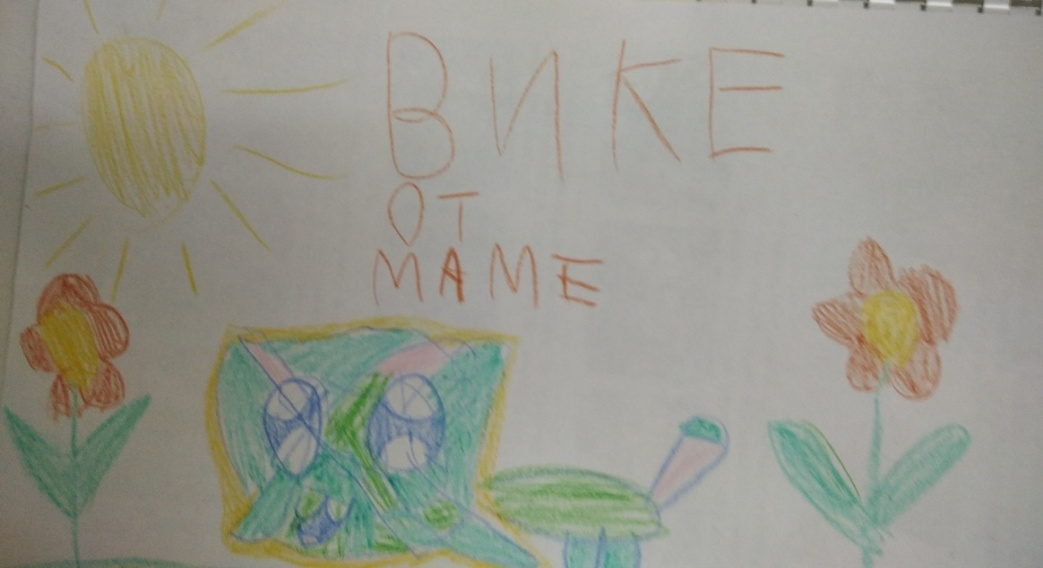 ВИКЕ
ОТ
МАМЕ